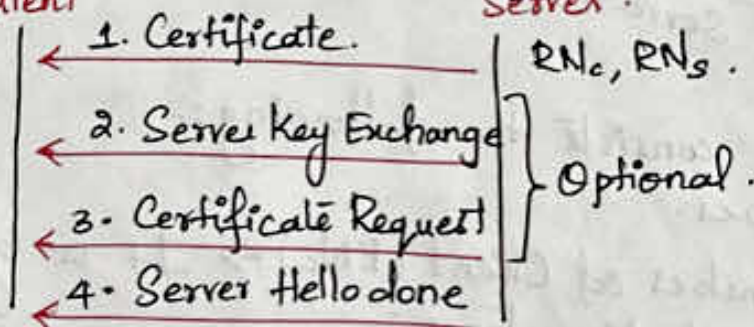 Server.
1. Certificate.
RNc, RNs.
2. Server Key Exchange
Optional.
3. Certificate Request
4. Server Hello done